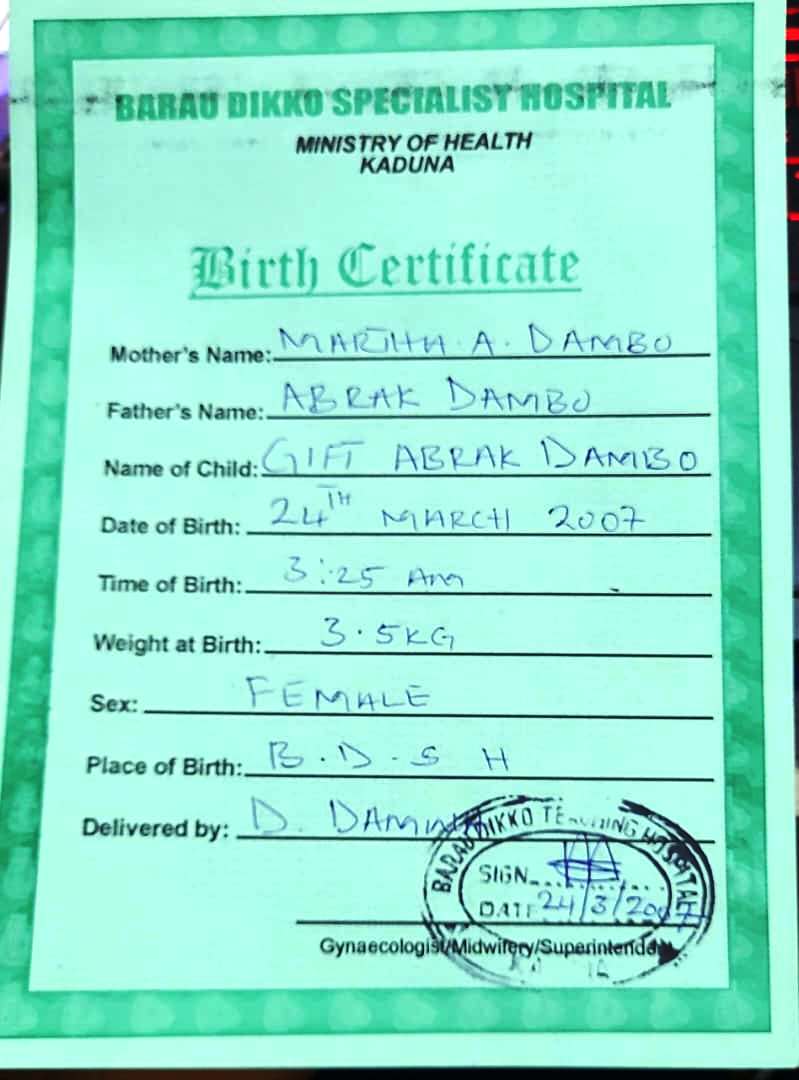 BARAU DIKKO SPECIALIST HOSPITAL
MINISTRY OF HEALTH
KADUNA
Birth Certificate
Mother's Name: MARTHA. A. DAMBO
Father's Name: ABRAK DAMBO
Name of Child: GIFT ABRAK DAMBO
Date of Birth: 24TH MARCH 2007
Time of Birth: 3:25 Am
Weight at Birth: 3.5KG
Sex: FEMALE
Place of Birth: B.D.S H
Delivered by: D.
BARAU DIKKO TEACHING HOSPITAL
SIGN
DATE 24/3/2007
Gynaecologist/Midwifery/Superintendent